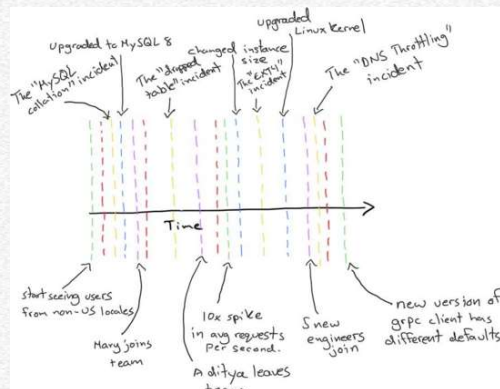 The "MySQL
collation" incident
Upgraded to MySQL 8
The "dropped
table" incident
changed instance
size
The "EXT4"
incident
upgraded
Linux Kernel
The "DNS Throttling"
incident
Time
start seeing users
from non-US locales
Mary joins
team
Aditya leaves
10x spike
in avg requests
Per second.
5 new
engineers
join
new version of
grpc client has
different defaults